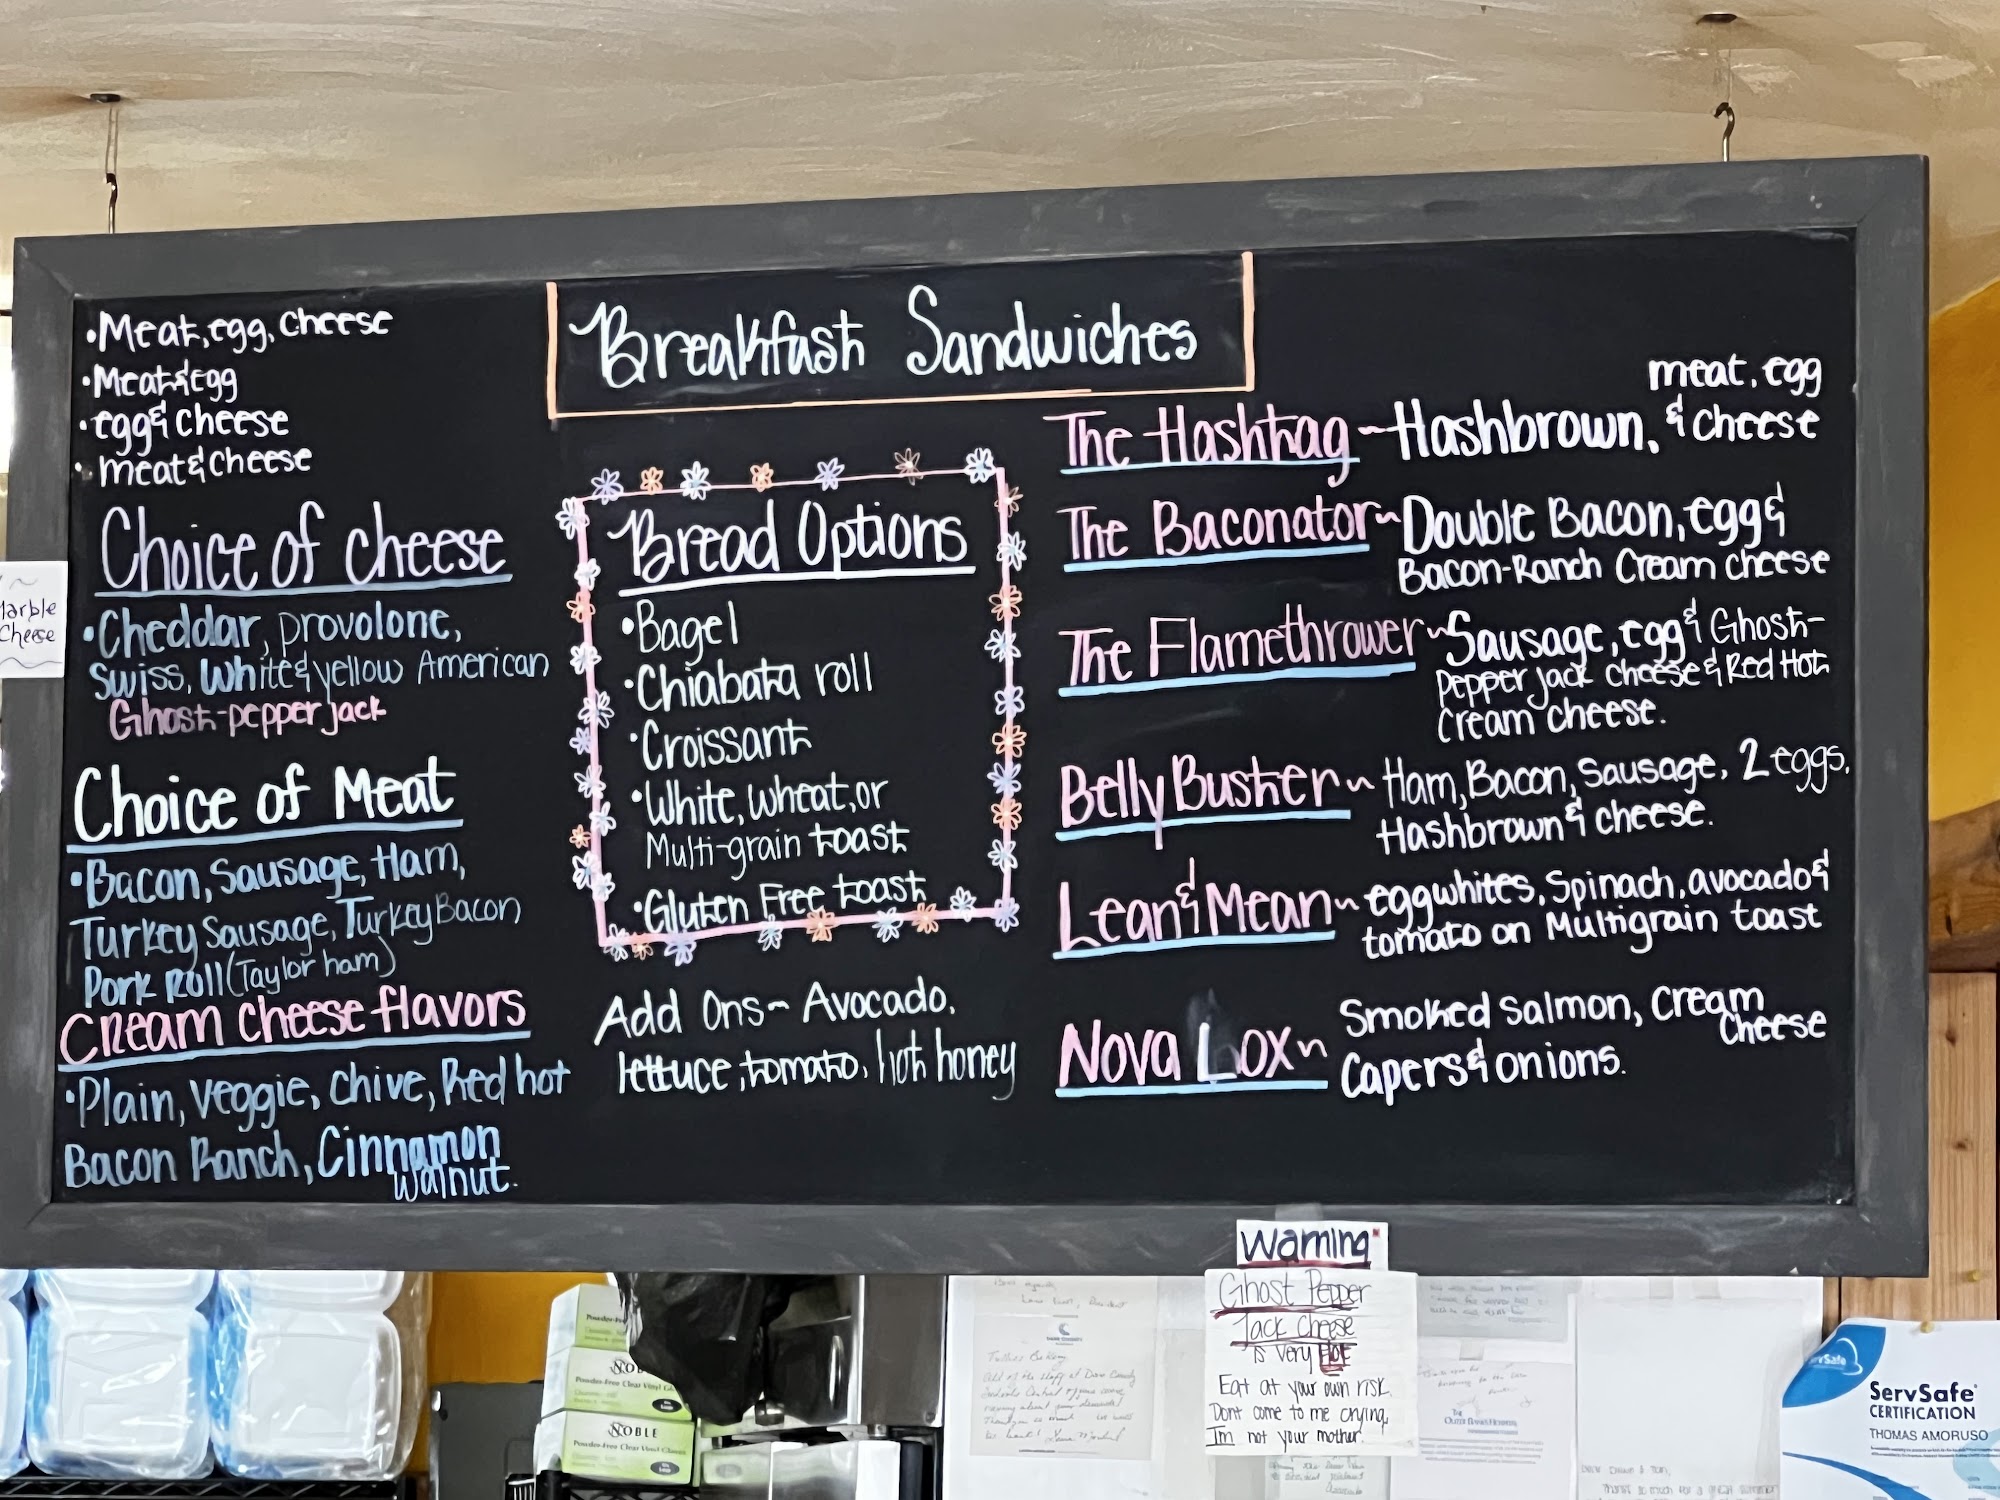 Breakfast Sandwiches
•Meat, egg, cheese
•Meat & egg
•egg & cheese
•meat & cheese
Choice of cheese
•Cheddar, provolone,
Swiss, White & yellow American
Ghost-pepper jack
Choice of Meat
•Bacon, Sausage, Ham,
Turkey Sausage, Turkey Bacon
Pork Roll (Taylor ham)
Cream cheese flavors
•Plain, veggie, chive, Red hot
Bacon Ranch, Cinnamon
walnut.
Marble
Cheese
Bread Options
•Bagel
•Chiabata roll
•Croissant
•White, wheat, or
Multi-grain toast
•Gluten Free toast
Add Ons~ Avocado,
lettuce, tomato, hot honey
meat, egg
The Hashtag ~ Hashbrown, & cheese
The Baconator ~ Double Bacon, egg &
Bacon-Ranch Cream cheese
The Flamethrower ~ Sausage, egg & Ghost-
pepper jack cheese & Red Hot
cream cheese.
Belly Buster ~ Ham, Bacon, Sausage, 2 eggs,
Hashbrown & cheese.
Lean & Mean ~ eggwhites, Spinach, avocado &
tomato on Multigrain toast
Nova Lox ~ Smoked Salmon, Cream
Cheese
Capers & onions.
Warning
Ghost Pepper
Jack Cheese
is very HOT
Eat at your own risk.
Dont come to me crying,
Im not your mother.
NOBLE
Powder-Free Clear Vinyl
NOBLE
Powder-Free Clear Vinyl Gloves
ServSafe
ServSafe
CERTIFICATION
THOMAS AMORUSO